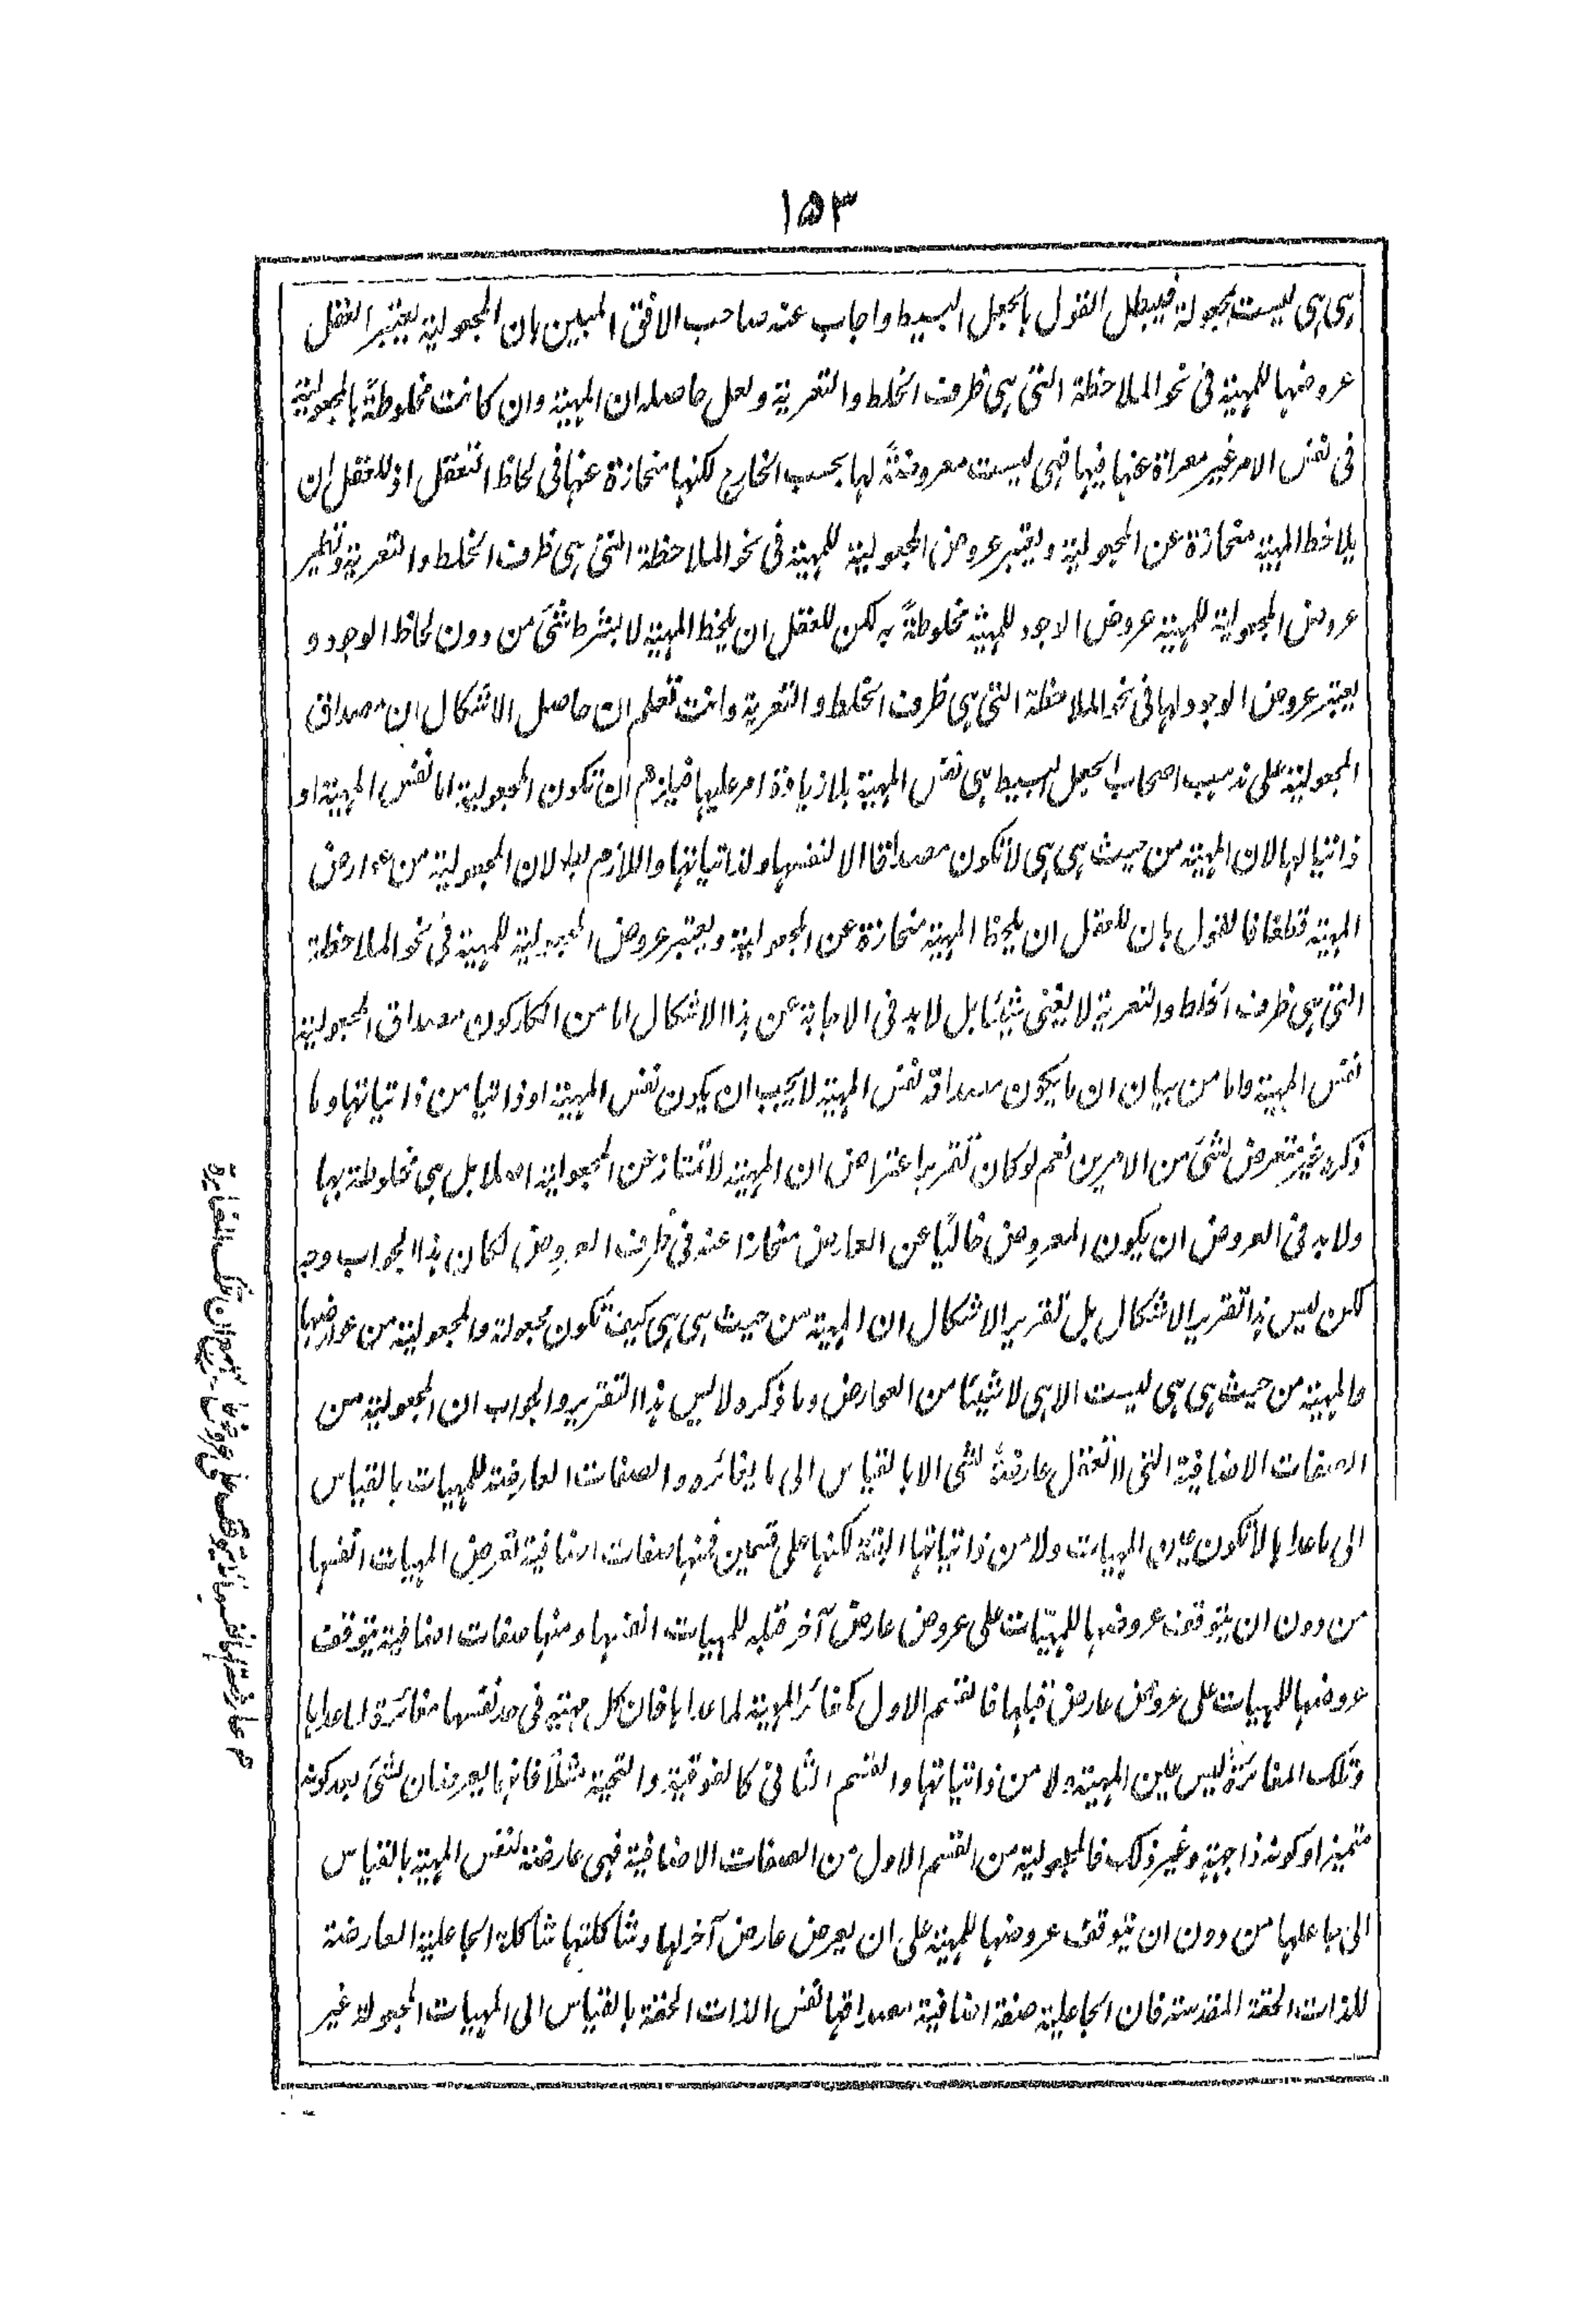 ١٥٣
هى هى ليست مجعولة فيبطل القول بالجعل البسيط واجاب عنه صاحب الافق المبين بان المجعولية يعتبر العقل
عروضها للمهية فى نحو الملاحظة التى هى ظرف الخلط والتعرية ولعل حاصله ان المهية وان كانت مخلوطةً بالمجعولية
فى نفس الامر غير معراة عنها فيها فهى ليست معروضةً لها بحسب الخارج لكنها منحازة عنها فى لحاظ التعقل اذ للعقل ان
يلاحظ المهية منحازة عن المجعولية ويعتبر عروض المجعولية للمهية فى نحو الملاحظة التى هى ظرف الخلط والتعرية ونظير
عروض المجعولية للمهية عروض الوجود للمهية مخلوطةً به لكن للعقل ان يلحظ المهية لا بشرط شئ من دون لحاظ الوجود و
يعتبر عروض الوجود لها فى نحو الملاحظة التى هى ظرف الخلط والتعرية وانت تعلم ان حاصل الاشكال ان مصداق
المجعولية على مذهب اصحاب الجعل البسيط هى نفس المهية بلا زيادة امر عليها فيلزم ان تكون المجعولية اما نفس المهية او
ذاتيا لها لان المهية من حيث هى هى لا تكون مصداقا الا لنفسها ولذاتياتها واللازم باطل لان المجعولية من عوارض
المهية قطعًا فالقول بان للعقل ان يلحظ المهية منحازة عن المجعولية ويعتبر عروض المجعولية للمهية فى نحو الملاحظة
التى هى ظرف الخلط والتعرية لا يغنى شيئا بل لا بد فى الاجابة عن هذا الاشكال اما من انكار كون مصداق المجعولية
نفس المهية واما من بيان ان ما يكون مصداقه نفس المهية لا يجب ان يكون نفس المهية او ذاتيا من ذاتياتها وما
ذكره غير متعرض لشئ من الامرين نعم لو كان تقرير الاعتراض ان المهية لا تمتاز عن المجعولية اصلا بل هى مخلوطة بها
ولا بد فى العروض ان يكون المعروض خاليًا عن العارض منحازا عنه فى ظرف العروض لكان هذا الجواب وجه
لكن ليس ذا تقرير الاشكال بل تقرير الاشكال ان المهية من حيث هى هى كيف تكون مجعولة والمجعولية من عوارضها
والمهية من حيث هى هى ليست الا هى لا شيئا من العوارض وما ذكره لا ليس هذا التقرير والجواب ان المجعولية من
الصفات الاضافية التى لا تعقل عارضةً لشئ الا بالقياس الى ما يغائره والصفات العارضة للمهيات بالقياس
الى ما عداها لا تكون عين المهيات ولا من ذاتياتها البتة لكنها على قسمين فمنها صفات اضافية تعرض المهيات انفسها
من دون ان يتوقف عروضها للمهيّات على عروض عارض آخر قبله للمهيات انفسها ومنها صفات اضافية يتوقف
عروضها للمهيات على عروض عارض قبلها فالقسم الاول كتغائر المهية لما عداها فان كل مهية فى حد نفسها مغائرة لما عداها
وتلك المغائرة ليس عين المهية ولا من ذاتياتها والقسم الثانى كالفوقية والتحتية مثلًا فانهما يعرضان لشئ بعد كونه
متحيزا وكونه ذا جهةٍ وغير ذلك فالمجعولية من القسم الاول من الصفات الاضافية فهى عارضة لنفس المهية بالقياس
الى جاعلها من دون ان يتوقف عروضها للمهية على ان يعرض عارض آخر لها وشاكلتها شاكلة الجاعلية العارضة
للذات الحقة المقدسة فان الجاعلية صفة اضافية مصداقها نفس الذات الحقة بالقياس الى المهيات المجعولة غير